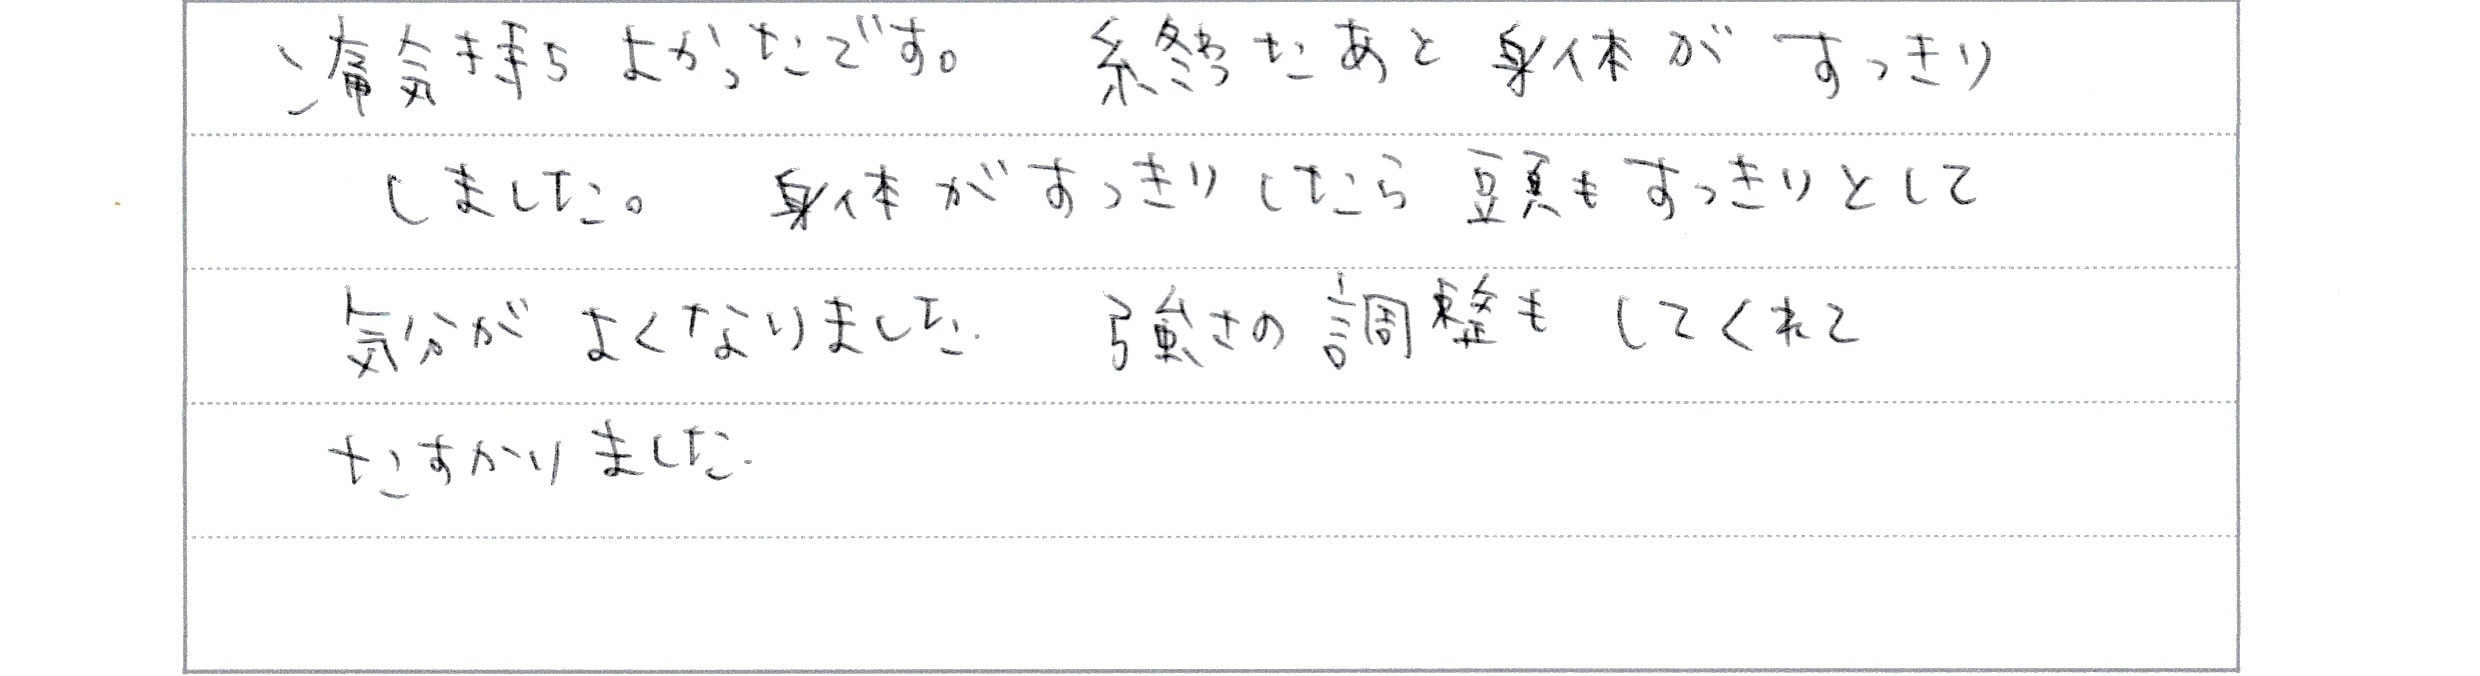 痛気持ちよかったです。 終わたあと身体がすっきり
しました。 身体がすっきりしたら頭もすっきりとして
気分がよくなりました. 強さの調整もしてくれて
たすかりました.